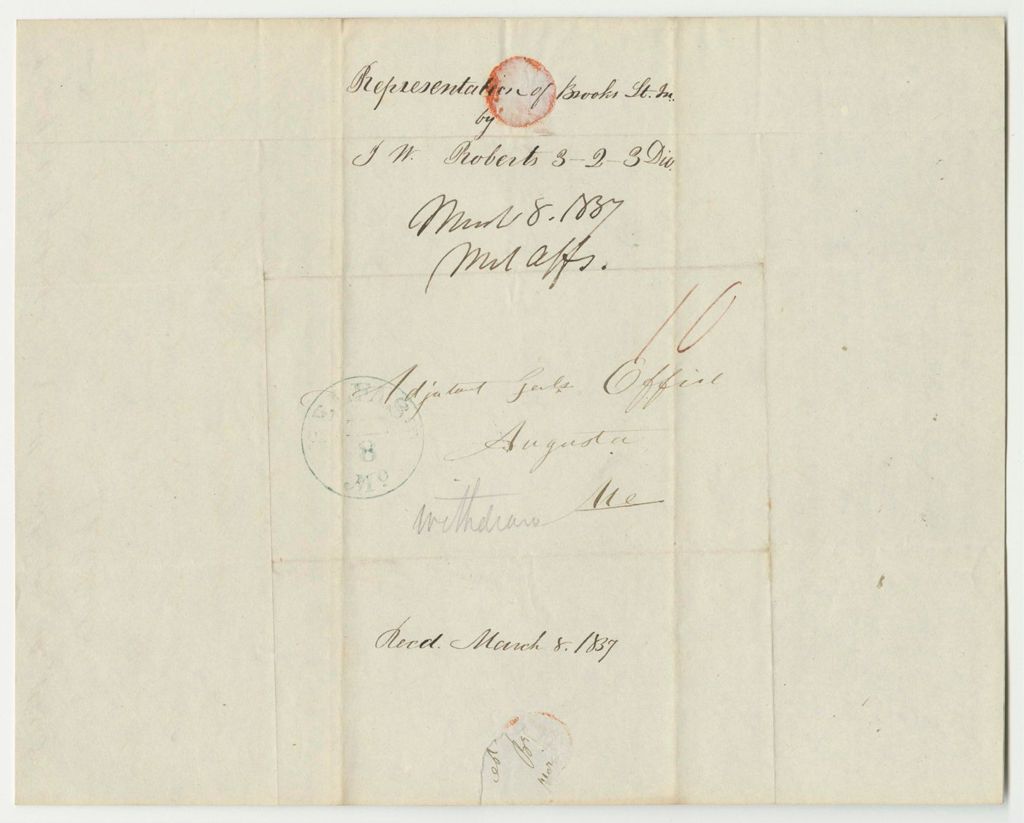 Representation of Brooks St. In.
by
J W. Roberts 3-2-3 Div.
March 8. 1837
Mil Affs.
10
Adjutant Genls Office
Augusta
Me
BELFAST
8
Me
withdrawn
Recd. March 8. 1837